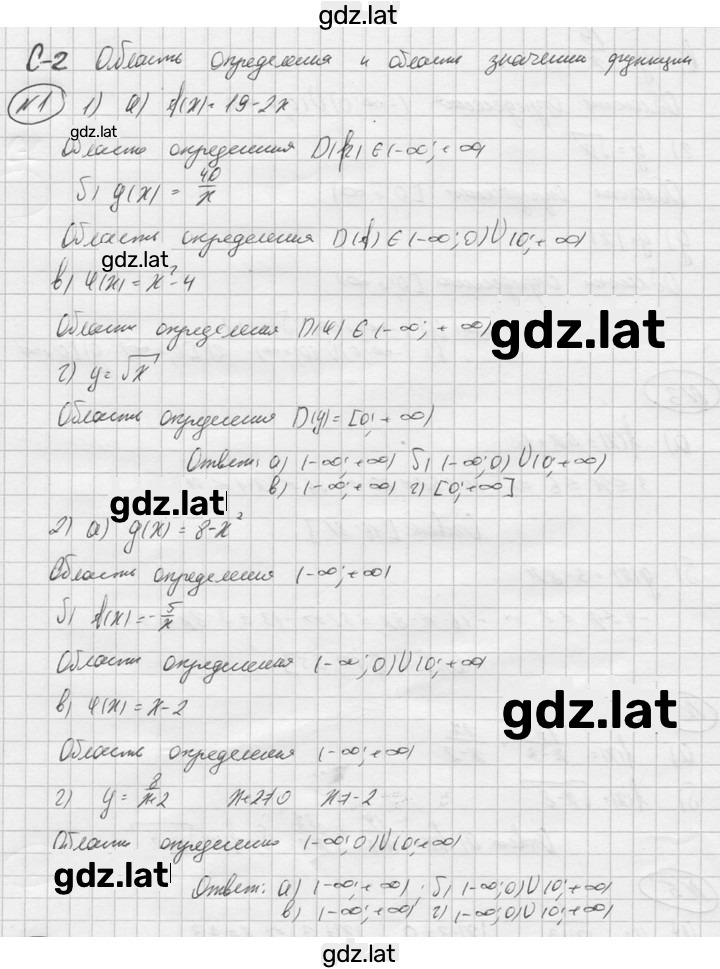 gdz.lat
С-2 Область определения и область значений функции
№1 1) а) f(x) = 19-2x
gdz.lat
Область определения D(f) ∈ (-∞; +∞)
б) g(x) = 40/x
Область определения D(f) ∈ (-∞; 0) ∪ (0; +∞)
gdz.lat
в) φ(x) = x²-4
Область определения D(φ) ∈ (-∞; +∞)
gdz.lat
г) y = √x
Область определения D(y) = [0; +∞)
Ответ: а) (-∞; +∞) б) (-∞; 0) ∪ (0; +∞)
в) (-∞; +∞) г) [0; +∞]
gdz.lat
2) а) g(x) = 8-x²
Область определения (-∞; +∞)
б) f(x) = -5/x
Область определения (-∞; 0) ∪ (0; +∞)
в) φ(x) = x-2
gdz.lat
Область определения (-∞; +∞)
г) y = 8/x+2 x+2≠0 x≠-2
Область определения (-∞; 0) ∪ (0; +∞)
gdz.lat
Ответ: а) (-∞; +∞) б) (-∞; 0) ∪ (0; +∞)
в) (-∞; +∞) г) (-∞; 0) ∪ (0; +∞)
gdz.lat